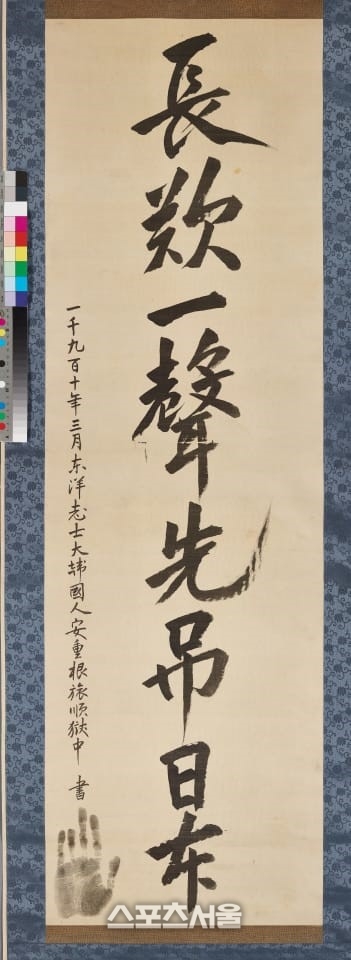 長歎一聲先吊日本
一千九百十年三月东洋志士大韓國人安重根旅順獄中 書
스포츠서울